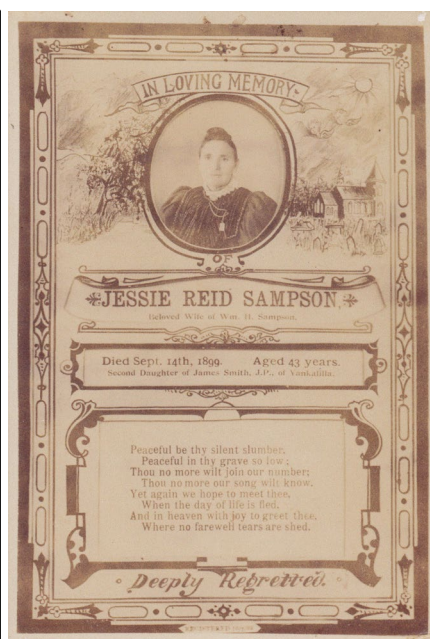 IN LOVING MEMORY
OF
JESSIE REID SAMPSON,
Beloved Wife of Wm. H. Sampson.
Died Sept. 14th, 1899. Aged 43 years.
Second Daughter of James Smith, J.P., of Yankalilla.
Peaceful be thy silent slumber,
Peaceful in thy grave so low;
Thou no more wilt join our number;
Thou no more our song wilt know.
Yet again we hope to meet thee,
When the day of life is fled,
And in heaven with joy to greet thee,
Where no farewell tears are shed.
Deeply Regretted.